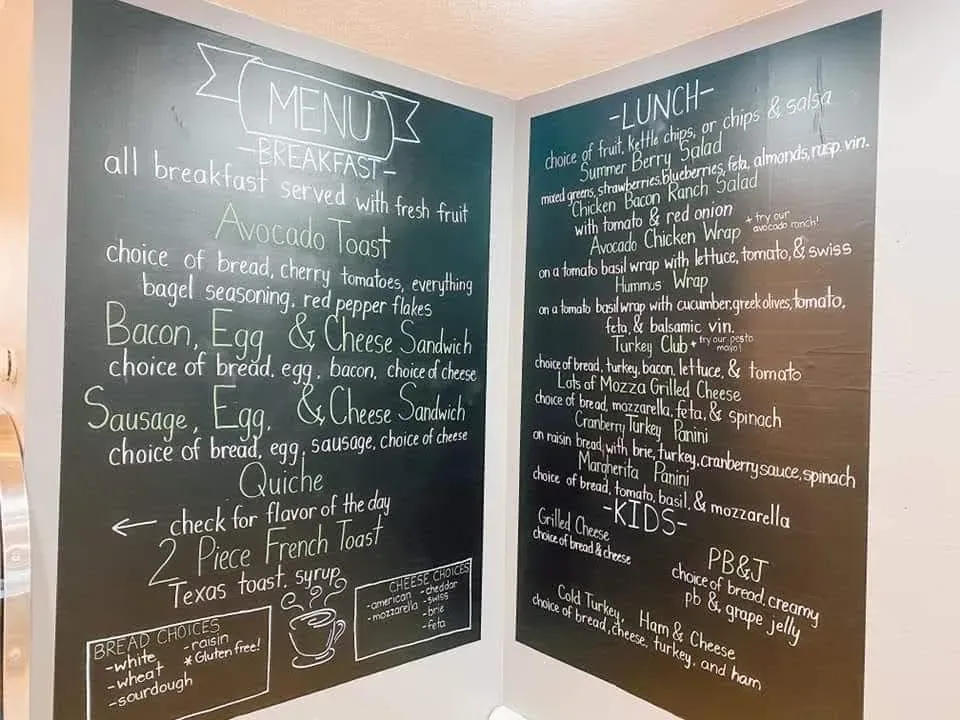 MENU
-BREAKFAST-
all breakfast served with fresh fruit
Avocado Toast
choice of bread, cherry tomatoes, everything
bagel seasoning, red pepper flakes
Bacon, Egg & Cheese Sandwich
choice of bread, egg, bacon, choice of cheese
Sausage, Egg, & Cheese Sandwich
choice of bread, egg, sausage, choice of cheese
Quiche
← check for flavor of the day
2 Piece French Toast
Texas toast, syrup
BREAD CHOICES
-white
-wheat
-sourdough
-raisin
*Gluten free!
CHEESE CHOICES
-american
-mozzarella
-cheddar
-swiss
-brie
-feta
-LUNCH-
choice of fruit, kettle chips, or chips & salsa
Summer Berry Salad
mixed greens, strawberries, blueberries, feta, almonds, rasp. vin.
Chicken Bacon Ranch Salad
with tomato & red onion
Avocado Chicken Wrap + try our
avocado ranch!
on a tomato basil wrap with lettuce, tomato, & swiss
Hummus Wrap
on a tomato basil wrap with cucumber, greek olives, tomato,
feta, & balsamic vin.
Turkey Club + try our pesto
mayo!
choice of bread, turkey, bacon, lettuce, & tomato
Lots of Mozza Grilled Cheese
choice of bread, mozzarella, feta, & spinach
Cranberry Turkey Panini
on raisin bread, with brie, turkey, cranberry sauce, spinach
Margherita Panini
choice of bread, tomato, basil, & mozzarella
-KIDS-
Grilled Cheese
choice of bread & cheese
PB&J
choice of bread, creamy
pb & grape jelly
Cold Turkey, Ham & Cheese
choice of bread, cheese, turkey, and ham